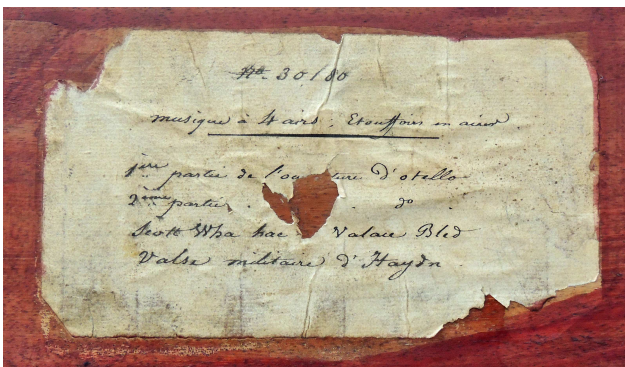 No. 30180
musique à 4 airs. Etouffoirs en acier
1ère partie de l'ou ture d'otello
2ème partie . . do .
Scott Wha hae Valace Bled
Valse militaire d'Haydn